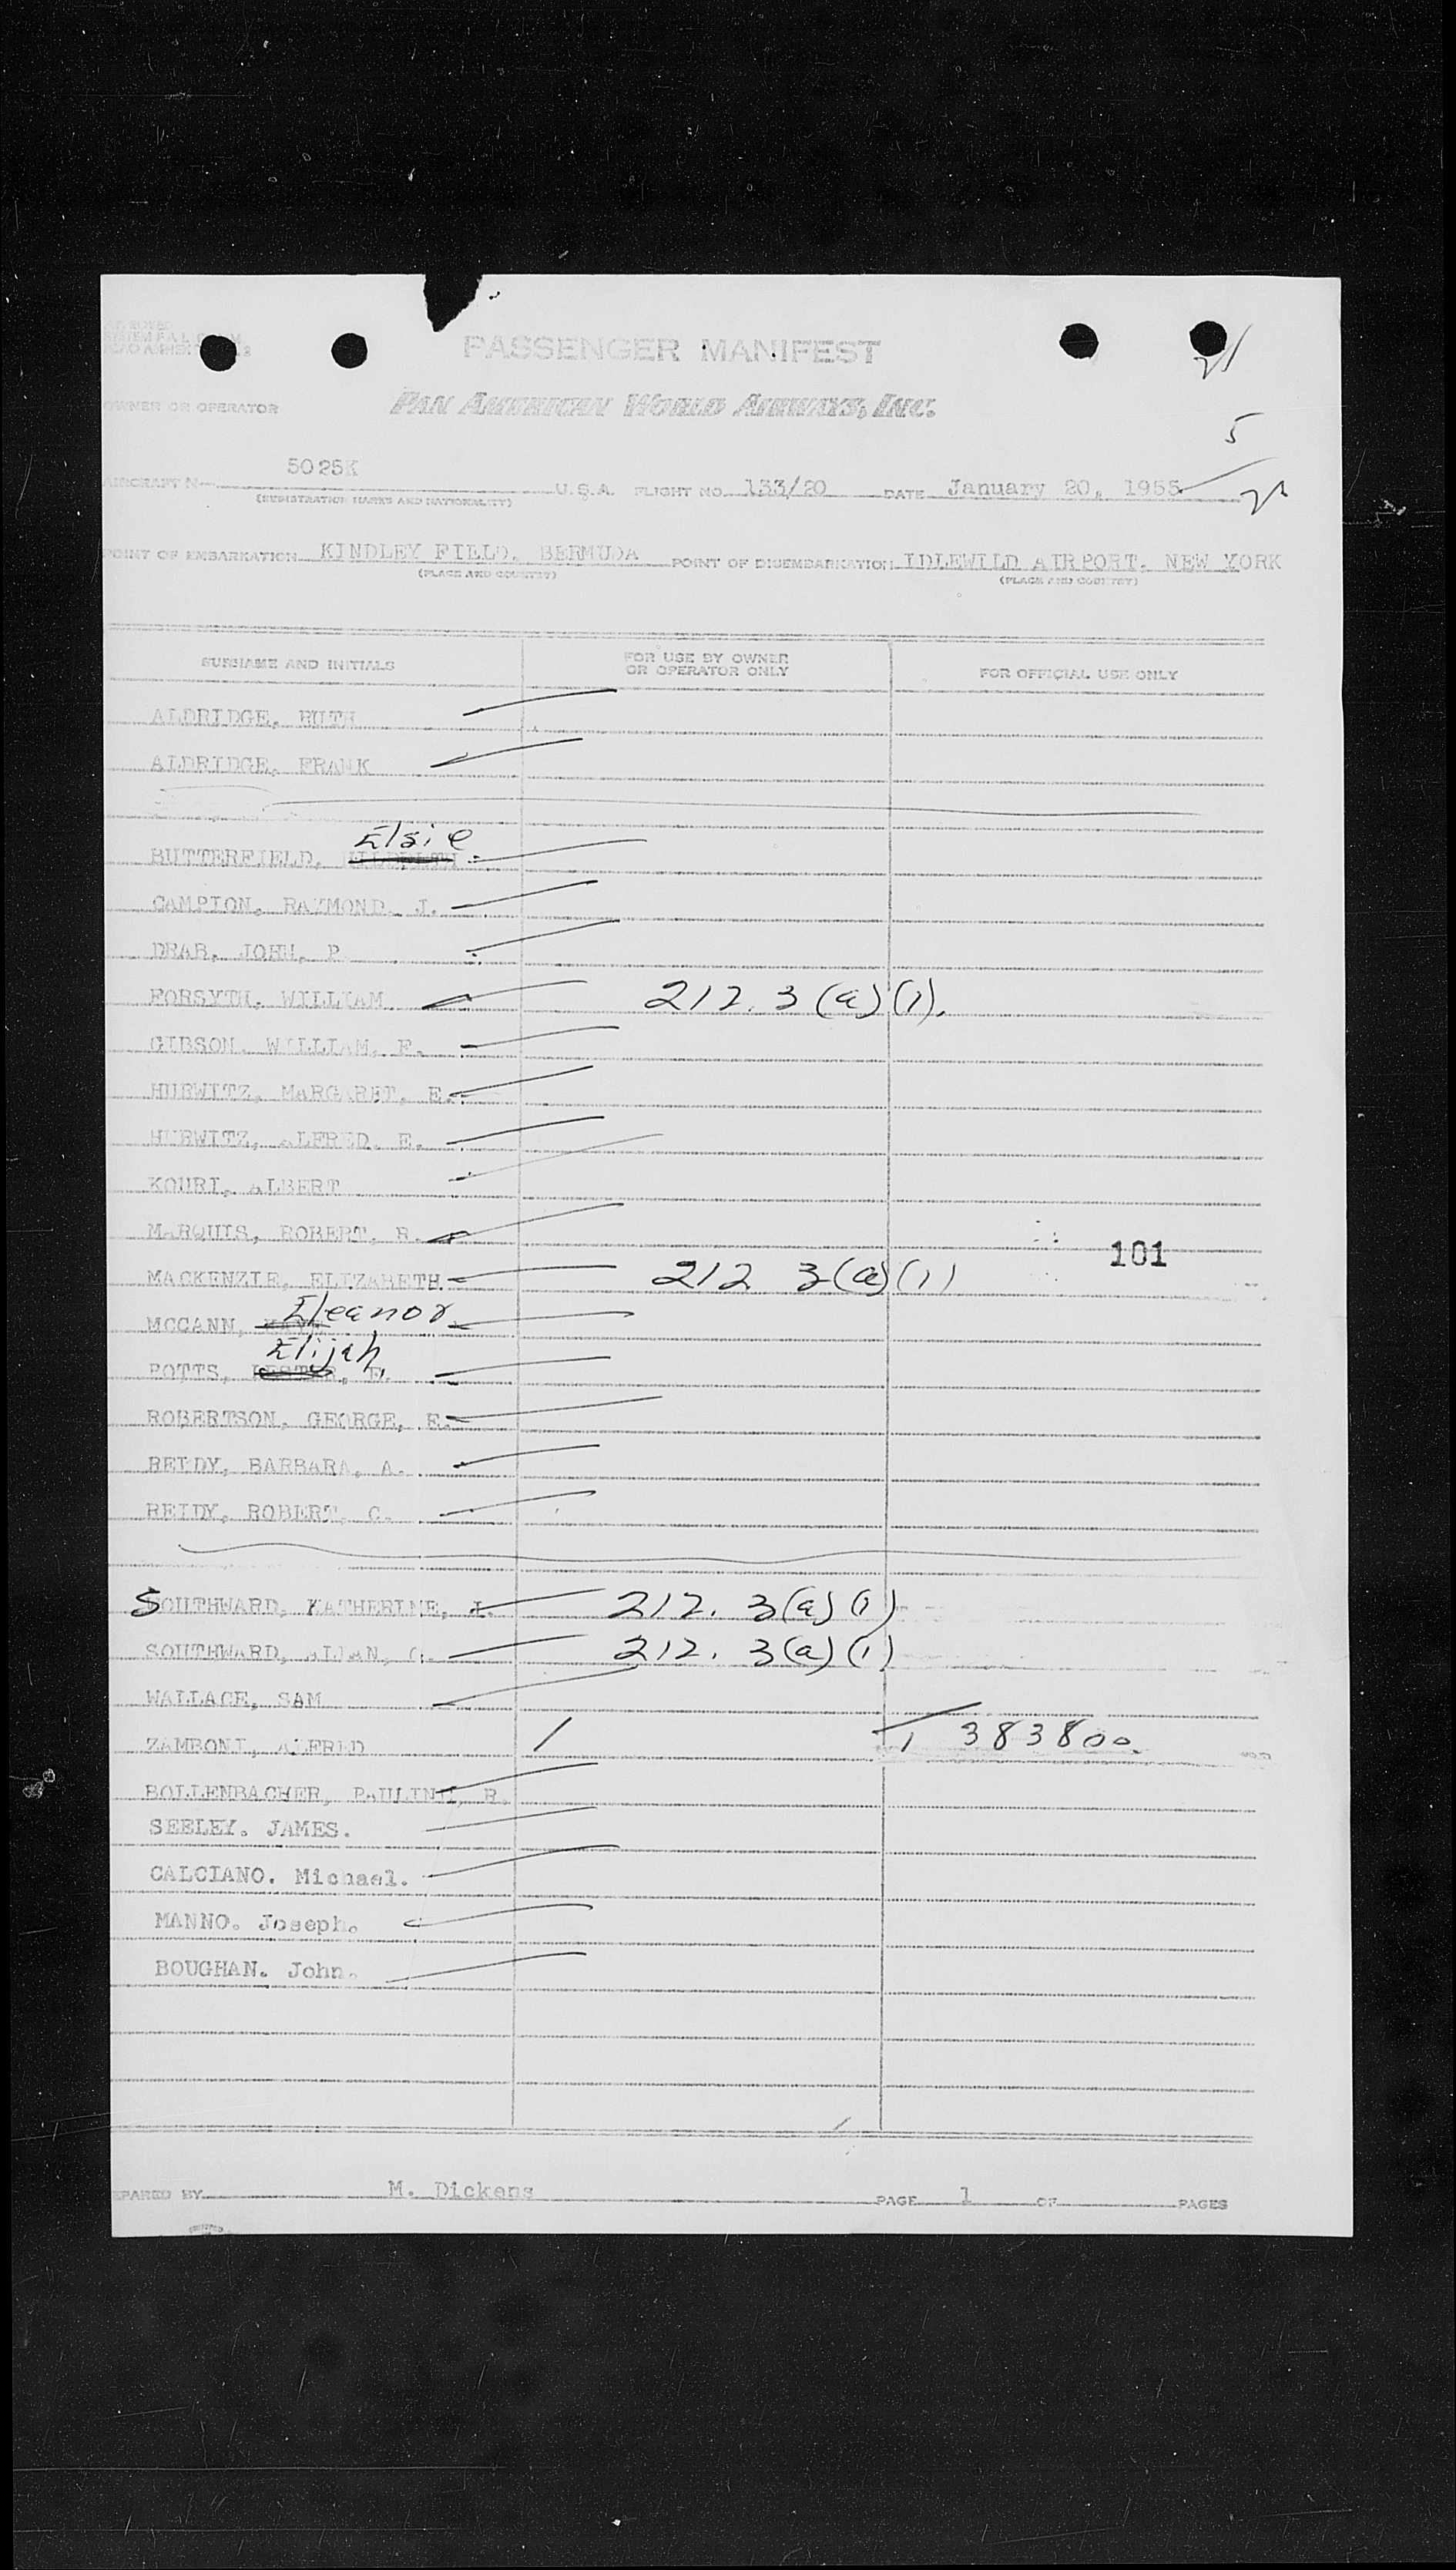 PASSENGER MANIFEST
OWNER OR OPERATOR PAN AMERICAN WORLD AIRWAYS, INC.
5
5025K
AIRCRAFT N— U.S.A. FLIGHT NO. 133/20 DATE January 20, 1955
(REGISTRATION MARKS AND NATIONALITY)
POINT OF EMBARKATION KINDLEY FIELD, BERMUDA POINT OF DISEMBARKATION IDLEWILD AIRPORT, NEW YORK
(PLACE AND COUNTRY) (PLACE AND COUNTRY)
SURNAME AND INITIALS FOR USE BY OWNER OR OPERATOR ONLY FOR OFFICIAL USE ONLY
ALDRIDGE, RUTH
ALDRIDGE, FRANK
Elsie
BUTTERFIELD,
CAMPION, RAYMOND, J.
DRAB, JOHN, P
FORSYTH, WILLIAM 212.3(a)(1).
GIBSON, WILLIAM, F.
HURWITZ, MARGARET, E.
HURWITZ, ALFRED, E.
KOURI, ALBERT
MARQUIS, ROBERT, R.
101
MACKENZIE, ELIZABETH 212 3(a)(1)
Eleanor
MCCANN,
Elijah
POTTS, LESTER, E.
ROBERTSON, GEORGE, E.
REIDY, BARBARA, A.
REIDY, ROBERT, C.
SOUTHWARD, KATHERINE, I. 212. 3(a)(1)
SOUTHWARD, ALLAN, C. 212. 3(a)(1)
WALLACE, SAM
ZAMBONI, ALFRED / 1 383800
BOLLENBACHER, PAULINE, R.
SEELEY. JAMES.
CALCIANO. Michael.
MANNO. Joseph.
BOUGHAN. John.
EPARED BY M. Dickens PAGE 1 OF PAGES